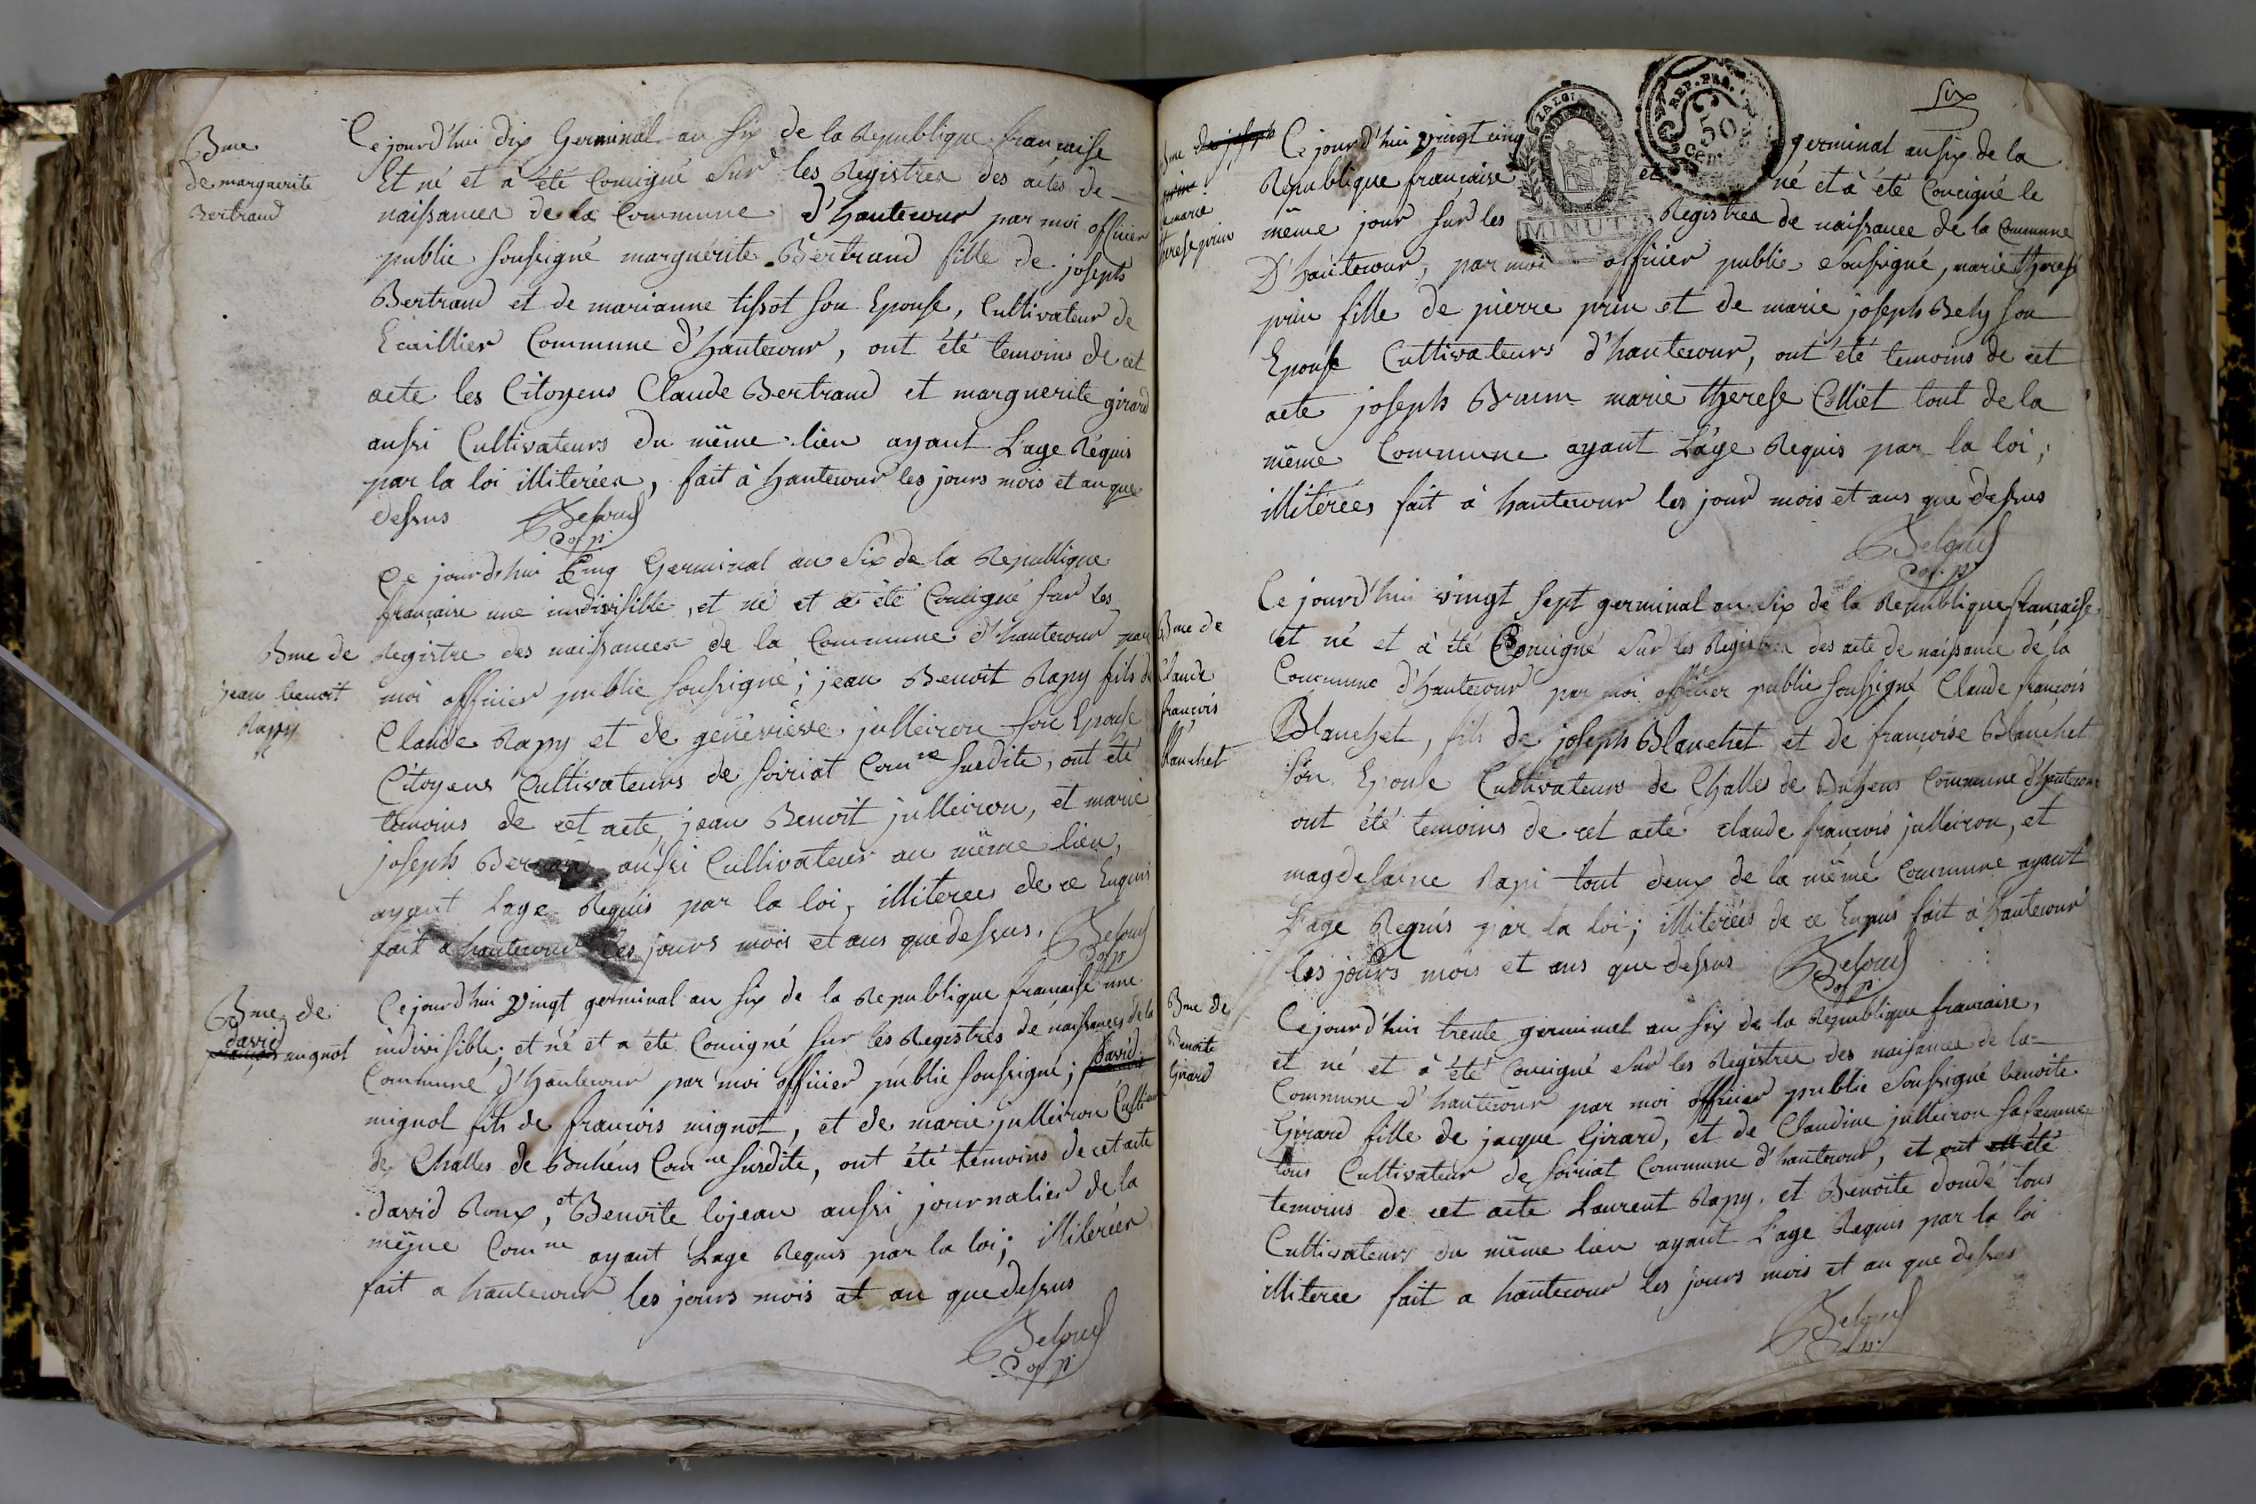 Bme
de marguerite
Bertrand
Ce jourd'hui dix Germinal an six de la Republique francaise
Et né et a été Consigné Sur les Registres des actes de
naissances de la Commune d'hautecour par moi officier
public soussigné marguerite Bertrand fille de joseph
Bertrand et de marianne tissot son Epouse, Cultivateur de
Ecaillier Commune d'hautecour, ont été temoins de cet
acte les Citoyens Claude Bertrand et marguerite girard
aussi Cultivateurs du même lieu ayant L'age Réquis
par la loi illiterées, fait à hautecour les jours mois et an que
dessus
Bme de
jean benoit
Rapy
Ce jourd'hui Cinq Germinal an Six de la Republique
francaise une indivisible, et né et a été Consigné sur les
Registre des naissances de la Commune d'hautecour par
moi officier public soussigné; jean Benoit Rapy fils de
Claude Rapy et de geneviéve julleiron son Epouse
Citoyens Cultivateurs de soiriat Comne susdite, ont été
temoins de cet acte, jean Benoit julleiron, et marie
joseph aussi Cultivateur au même lieu,
ayant Lage Requis par la loi, illiteree de ce Enquis
fait a hautecour les jours mois et ans que dessus.
Bme de
david
mignot
Ce jourd'hui vingt germinal an six de la Republique francaise une
indivisible; et né et a été Consigné sur les Registres de naissances de la
Commune d'hautecour par moi officier public soussigné; david
mignot fils de francois mignot, et de marie julleiron
de Challes de Bohéns Comne susdite, ont été temoins de cet acte
david Roux, et Benoite lojean aussi journalier de la
même Comne ayant Lage Requis par la loi; illiterées
fait a hautecour les jours mois et an que dessus
six
LA LOI
MINUT
REP. FRA.
50
Cen
Bme
marie
therese prin
Ce jourd'hui vingt cinq germinal an six de la
Republique francaise et né et à été Consigné le
même jour sur les Registres de naissance de la Commune
D'hautecour, par moi officier public soussigné, marie therese
prin fille de pierre prin et de marie joseph Bely son
Epouse Cultivateurs d'hautecour, ont été temoins de cet
acte joseph marie therese Colliet tout de la
même Commune ayant L'áge Requis par la loi;
illiterées fait à hautecour les jour mois et ans que dessus
Bme de
Claude
francois
blanchet
Ce jourd'hui vingt sept germinal an six de la Republique francaise
et né et à été Consigné Sur les Registres des acte de naissance de la
Commune d'hautecour par moi officier public soussigné Claude francois
Blanchet, fils de joseph Blanchet et de francoise Blanchet
son Epouse Cultivateurs de Challes de Bohens Commune d'hautecour
ont été temoins de cet acte claude francois julleiron, et
magdelaine Rapi tout deux de la même Commune ayant
L'age Requis par la loi; illiterées de ce Enquis fait á hautecour
les jours mois et ans que dessus
Bme de
Benoite
Girard
Ce jourd'hui trente germinal an six de la Republique francaise,
et né et à été Consigné sur les Registres des naisances de la
Commune d'hautecour par moi officier public soussigné benoite
Girard fille de jacque Girard, et de Claudine julleiron sa femme
tous Cultivateur de soiriat Commune d'hautecour, et ont été
temoins de cet acte Laurent Rapy, et Benoite dondé tous
Cultivateurs du même lieu ayant L'age Requis par la loi
illiteree fait a hautecour les jours mois et an que dessus